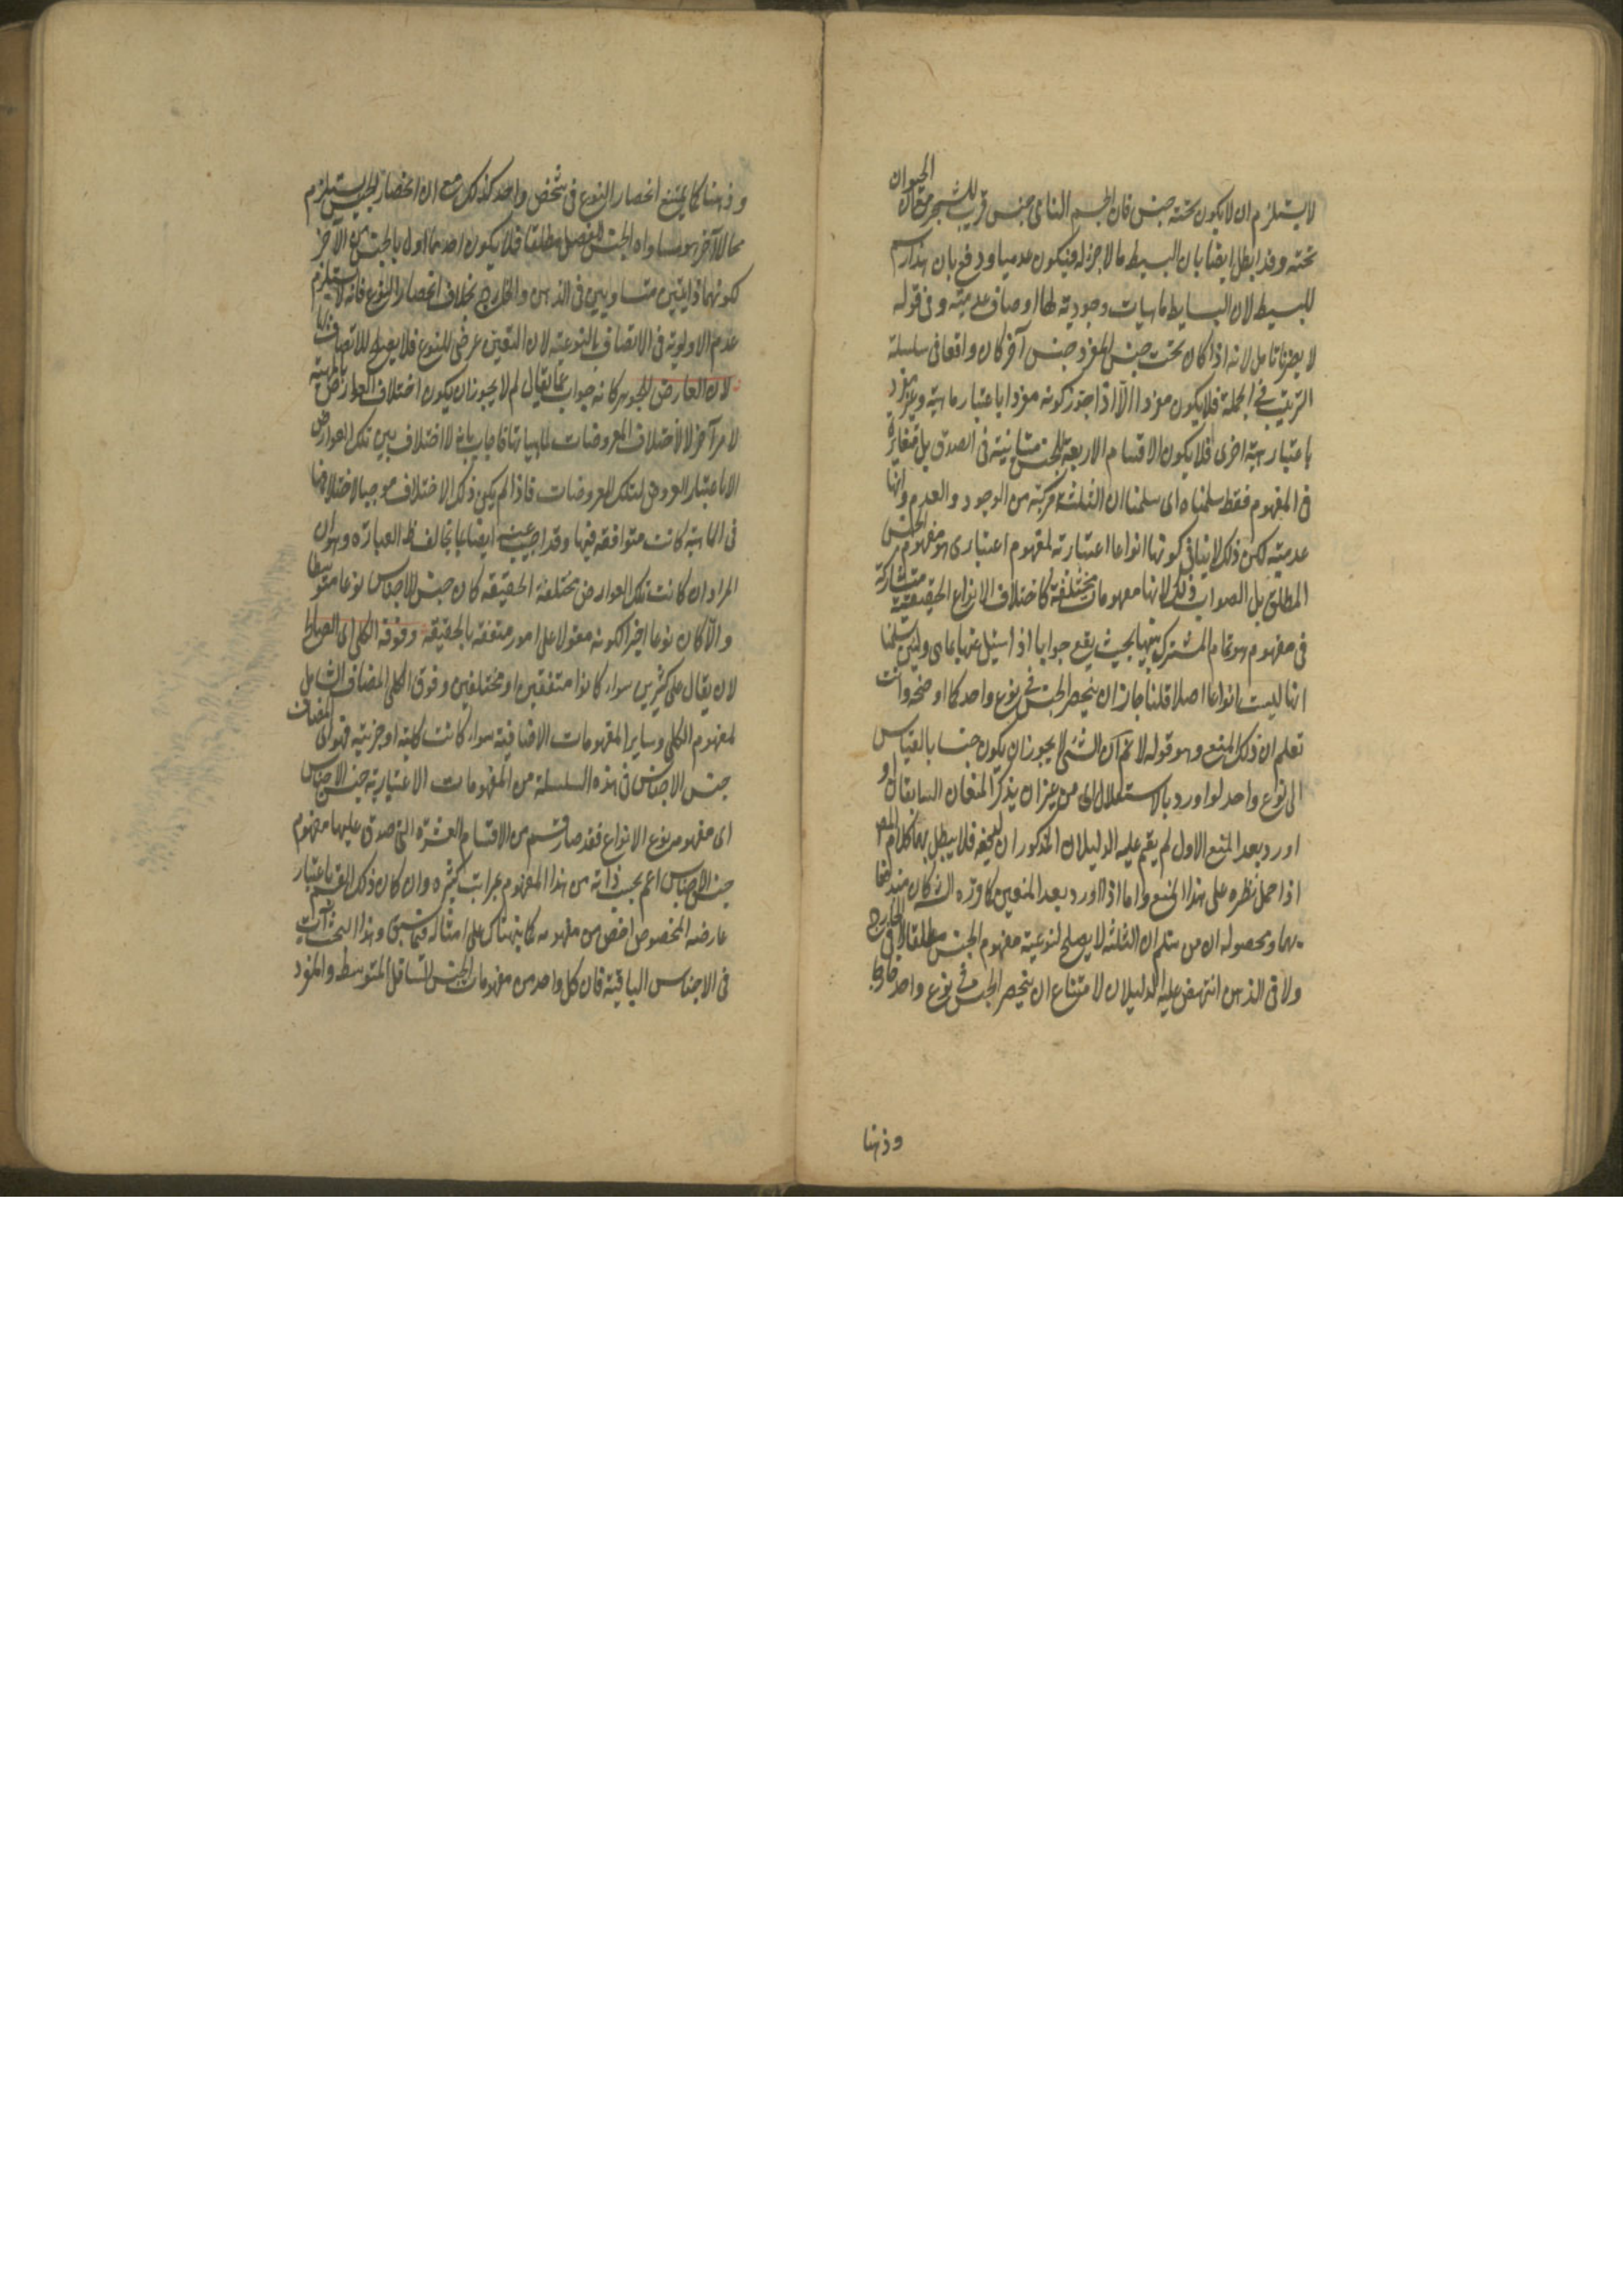 لا يستلزم ان لا يكون تحته جنس فان الجسم النامى جنس قريب للشجر مع ان الحيوان
تحته وقد ابطل ايضا بان البسيط ما لا جزء له فيكون عدميا ودفع بان هذا رسم
للبسيط لان البسايط ماهيات وجودية لها اوصاف عدمية وفى قوله
لا يضرنا تامل لانه اذا كان تحت جنس المفرد جنس آخر كان واقعا فى سلسلة
الترتيب فى الجملة فلا يكون مفردا الا اذا جوز كونه مفردا باعتبار ماهية وغير مفرد
باعتبار ماهية اخرى فلا يكون الاقسام الاربعة للجنس متباينة فى الصدق بل متغايرة
فى المفهوم فقط سلمناه اى سلمنا ان الثلثة مركبة من الوجود والعدم وانها
عدمية لكن ذلك لا ينافى كونها انواعا اعتبارية لمفهوم اعتبارى هو مفهوم الجنس
المطلق بل الصواب ذلك لانها مفهومات مختلفة كاختلاف الانواع الحقيقية متشاركة
فى مفهوم هو تمام المشترك بينها بحيث يقع جوابا اذا سئل عنها بما هى ولئن سلمنا
انها ليست انواعا اصلا قلنا جاز ان ينحصر الجنس فى نوع واحد كما اوضحه وانت
تعلم ان ذلك المنع وهو قوله لا نم ان الشئ لا يجوز ان يكون جنسا بالقياس
الى نوع واحد لو اورد بالاستقلال اى من غير ان يذكر المنعان السابقان او
اورد بعد المنع الاول لم يقم عليه الدليلان المذكوران لدفعه فلا يبطل بهما كلام المص
اذا حمل نظره على هذا المنع واما اذا اورد بعد المنعين كما قرره الش كان مندفعا
بهما ومحصوله ان من سلم ان الثلثة لا يصلح لنوعية مفهوم الجنس مطلقا لا فى الخارج
ولا فى الذهن انتهض عليه الدليلان لامتناع ان ينحصر الجنس فى نوع واحد خارجا
وذهنا
وذهنا كما يمتنع انحصار النوع فى شخص واحد كذلك مع ان انحصار الجنس يستلزم
محالا آخر هو مساواة الجنس الفصل مطلقا فلا يكون احدهما اولى بالجنس من الآخر
لكونهما ذاتيين متساويين فى الذهن والخارج بخلاف انحصار النوع فانه لا يستلزم
عدم الاولوية فى الاتصاف بالنوعية لان التعين عرضى للنوع فلا يصلح للاتصاف بها
لان العارض للجوهر كانه جواب عما يقال لم لا يجوز ان يكون اختلاف العوارض بالماهية
لامر آخر لا لاختلاف المعروضات لماهياتها فاجاب بانه لا اختلاف بين تلك العوارض
الا باعتبار العروض لتلك المعروضات فاذا لم يكن ذلك الاختلاف موجبا لاختلافها
فى الماهية كانت متوافقة فيها وقد اجيب عنه ايضا بما يخالف ظ العبارة وهو ان
المراد ان كانت تلك العوارض مختلفة الحقيقة كان جنس الاجناس نوعا متوسطا
والا كان نوعا اخيرا لكونه مقولا على امور متفقة بالحقيقة وفوقه الكلى اى الصالح
لان يقال على كثيرين سواء كانوا متفقين او مختلفين وفوق الكلى المضاف الشامل
لمفهوم الكلى وساير المفهومات الاضافية سواء كانت كلية او جزئية فهو اى المضاف
جنس الاجناس فى هذه السلسلة من المفهومات الاعتبارية جنس الاجناس
اى مفهومه نوع الانواع فقد صار قسم من الاقسام العشرة التى صدق عليها مفهوم
جنس الاجناس اعم بحسب ذاته من هذا المفهوم بمراتب كثيرة وان كان ذلك القسم باعتبار
عارضه المخصوص اخص من مفهومه كما ينهناك على امثاله فيما سبق وهذا البحث آت
فى الاجناس الباقية فان كل واحد من مفهومات الجنس السافل والمتوسط والمفرد